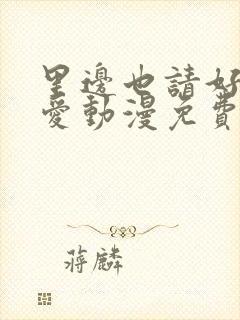 里邊也請好
愛動漫免費
蔣麟